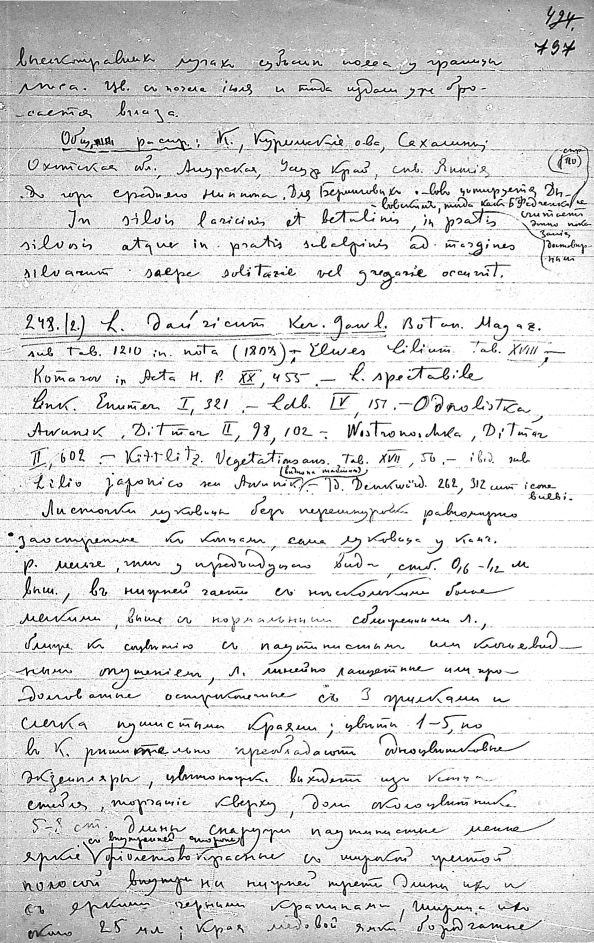 424.
797
высокотравных лугах субальп. пояса у границы
леса. Цв. съ начала iюля и тогда издали уже бро-
сается въ глаза.
Общ. распр.: К., Курильскiе о-ва, Сахалинъ,
Охотская обл., Амурская, Уссур. Край, сѣв. Японiя
до горъ средняго Ниппона. Для Беринговыхъ о-вовъ цитируется
In silvis laricinis et betulinis, in pratis
silvosis atque in pratis subalpinis ad margines
silvarum saepe solitarie vel gregarie occurit.
248.(2.) L. dauricum Ker. Gawl. Botan. Magaz.
sub tab. 1210 in nota (1809); Elwes Lilium Tab. XVIII;
Komarov in Acta H. P. XX, 455. – L. spectabile
Link. Enumer I, 321. – Ldb. IV, 151. – Odnolistka,
Awunik, Ditmar II, 98, 102 – Wostronoschka, Ditmar
II, 602. – Kittlitz. Vegetationsans. Tab. XVII, 56. – ibid. sub
Lilio japonico seu Awunik. Id. Denkwürd. 262, 312 cum icone
bulbi.
Листочки луковицы безъ перешнуровки равномѣрно
заостренные къ концамъ, сама луковица у камч.
р. меньше, чѣмъ у предыдущаго вида, стеб. 0,6–1/2 м
выш., въ нижней части съ нѣсколькими болѣе
мелкими, выше съ нормальными сближенными л.,
ближе къ соцвѣтiю съ паутинистымъ или клочьевид-
нымъ опушенiемъ, л. линейно ланцетные или про-
долговатые остроконечные съ 3 жилками и
слегка пушистыми краями; цвѣты 1–5, но
въ К. рѣшительно преобладаютъ одноцвѣтковые
экземпляры, цвѣтоножка выходитъ изъ конца
стебля, торчащiе кверху, доли околоцвѣтника
5–8 cm длины снаружи паутинистые менѣе
съ внутренней стороны
яркiе фiолетовокрасные съ широкой желтой
полосой внутри на нижней трети длины ихъ и
съ яркими черными крапинами, ширина ихъ
около 25 мл; края медовой ямки бородчатые